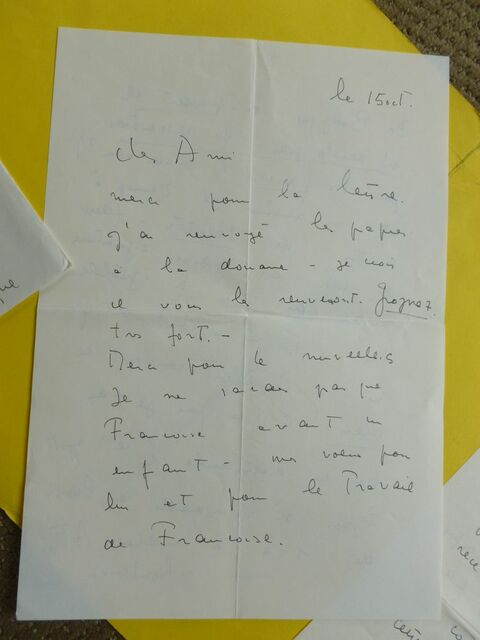 le 15 oct.
Cher Ami
merci pour la lettre.
J'ai renvoyé les papiers
à la douane - je crois
vous les renverront. Grognez
très fort. -
Merci pour le nouvelles
Je ne savais pas que
Francoise avait un
enfant - mes voeux pour
lui et pour le Travail
de Francoise.